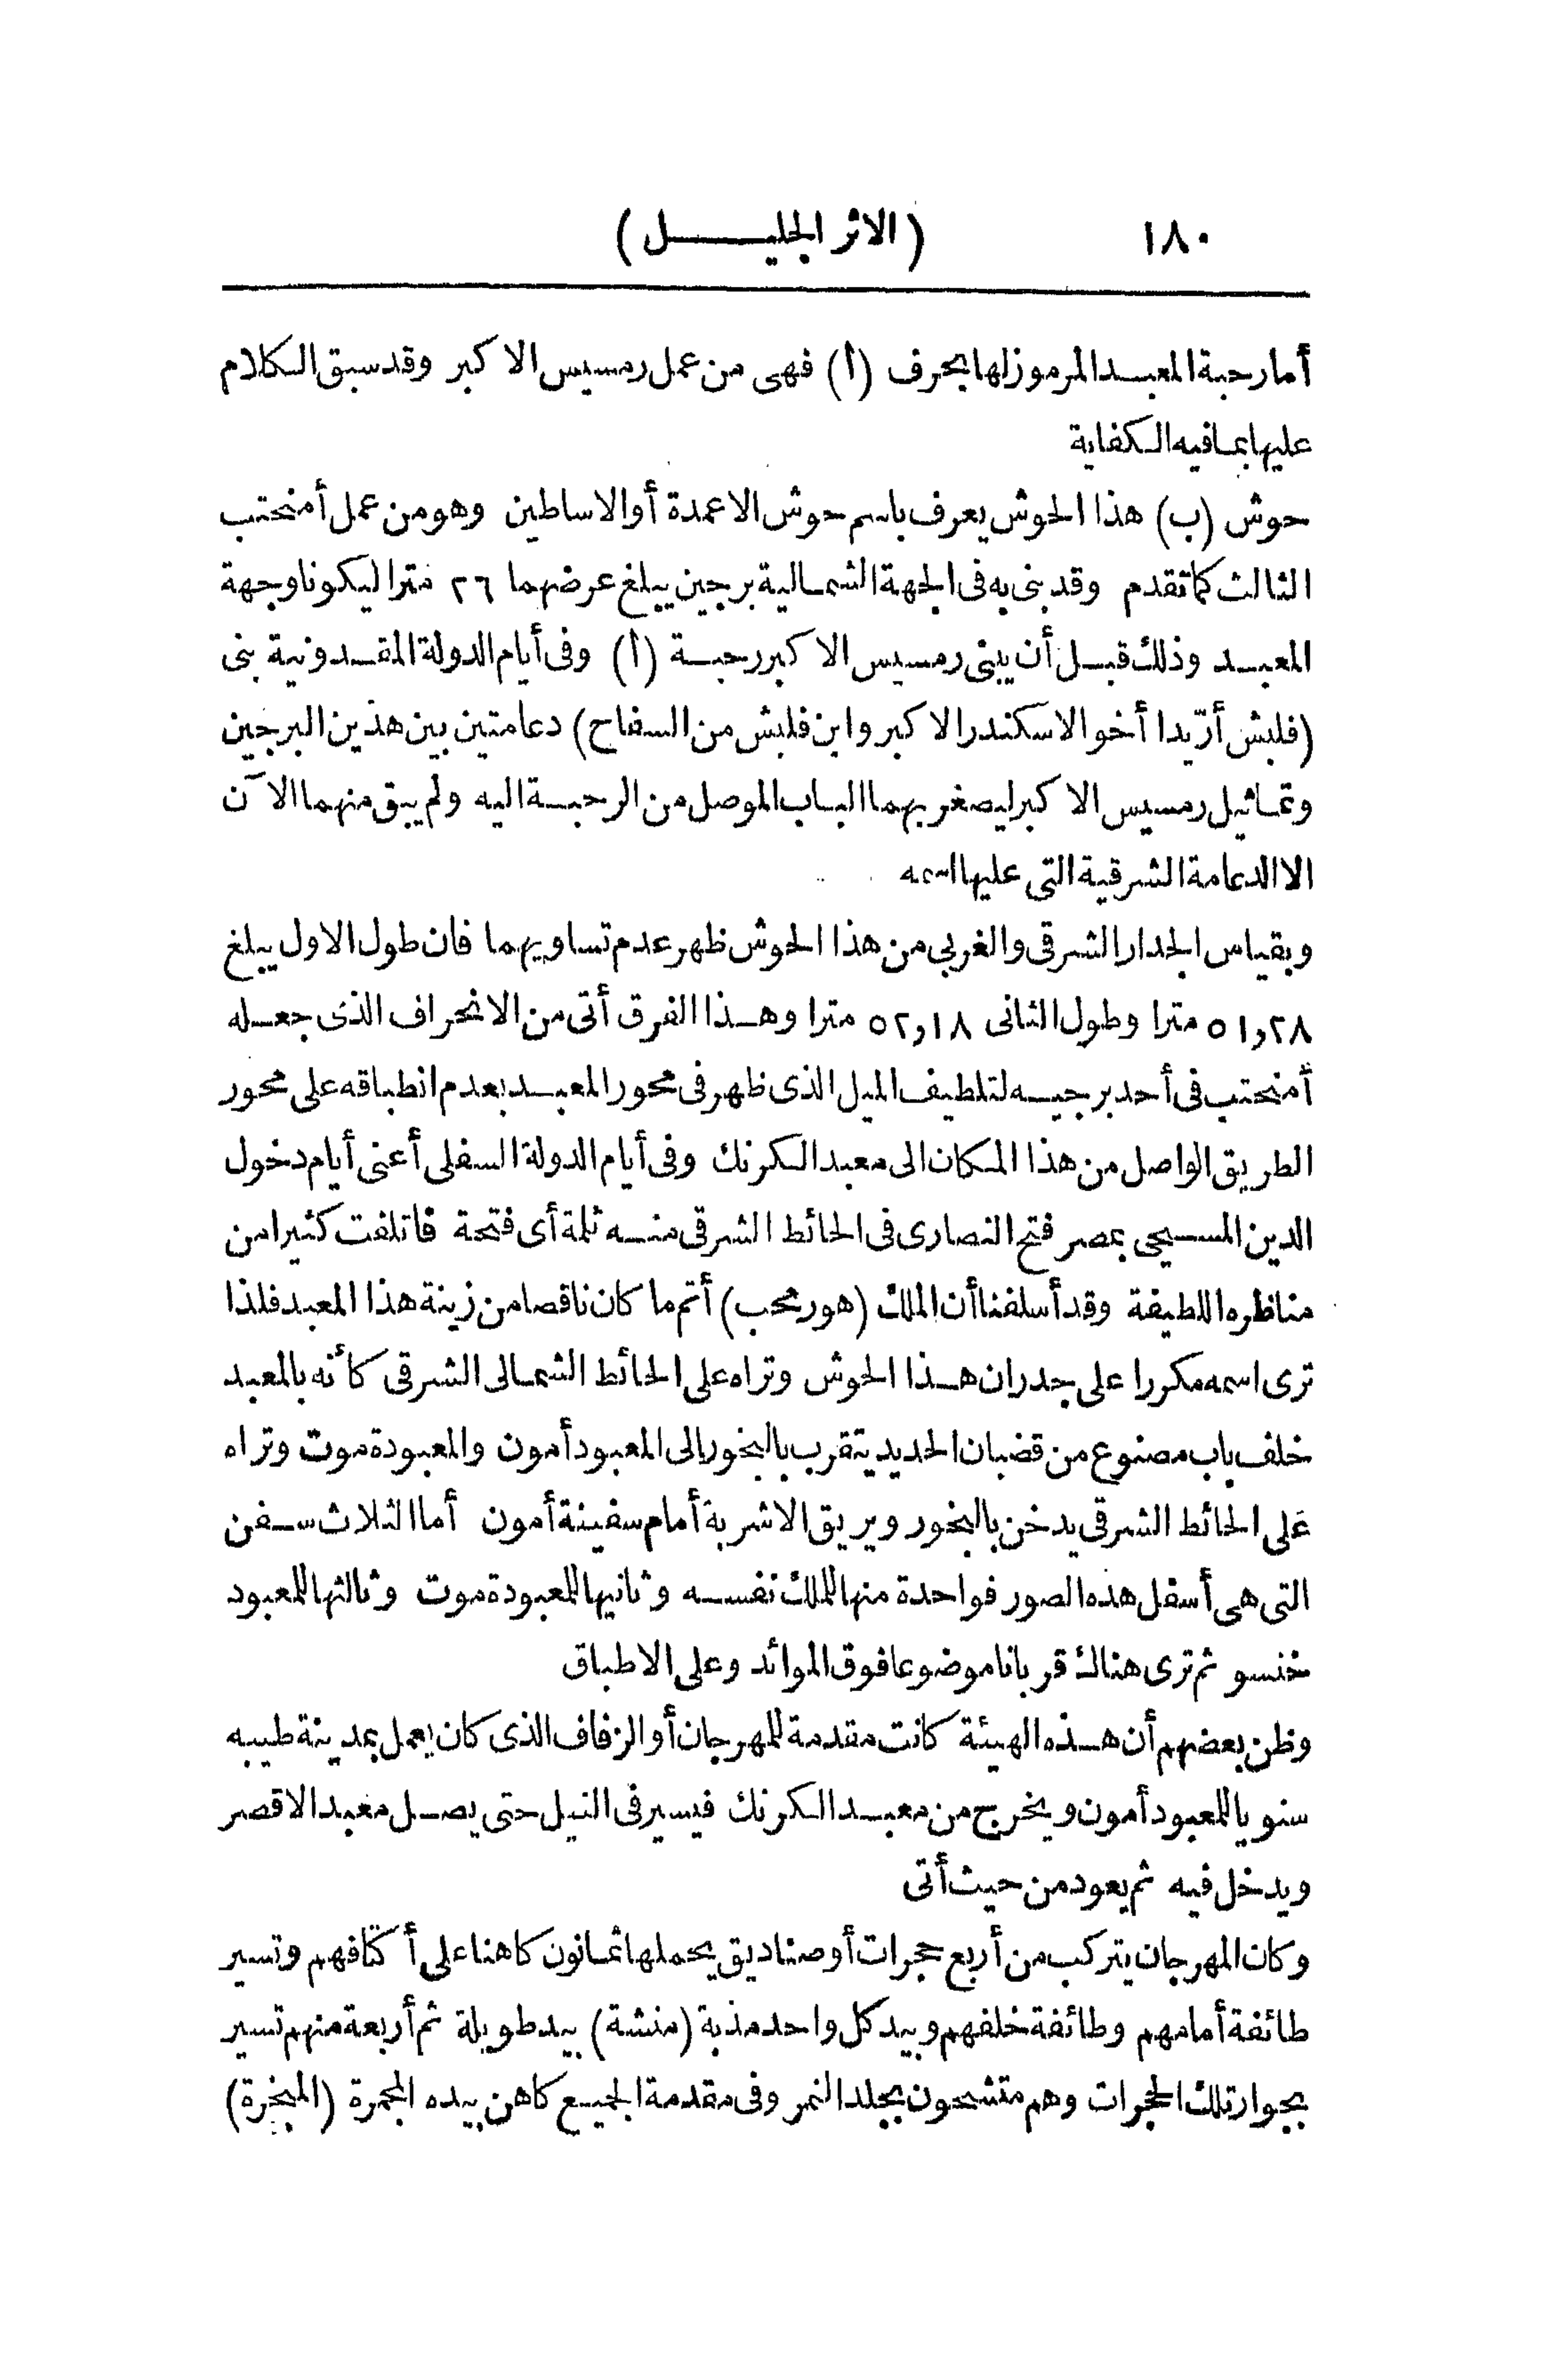 ١٨٠ (الاثر الجليل)
أما رحبة المعبد المرموز لها بحرف (أ) فهى من عمل رمسيس الاكبر وقد سبق الكلام
عليها بما فيه الكفاية
حوش (ب) هذا الحوش يعرف باسم حوش الاعمدة أو الاساطين وهو من عمل أمنحتب
الثالث كما تقدم وقد بنى به فى الجهة الشمالية برجين يبلغ عرضهما ٢٦ مترا ليكونا وجهة
المعبد وذلك قبل أن يبنى رمسيس الاكبر رحبة (أ) وفى أيام الدولة المقدونية بنى
(فلبش أرّيدا أخو الاسكندر الاكبر وابن فلبش من السفاح) دعامتين بين هذين البرجين
وتماثيل رمسيس الاكبر ليصغر بهما الباب الموصل من الرحبة اليه ولم يبق منهما الآن
الا الدعامة الشرقية التى عليها اسمه
وبقياس الجدار الشرقى والغربى من هذا الحوش ظهر عدم تساويهما فان طول الاول يبلغ
٥١٫٢٨ مترا وطول الثانى ٥٢٫١٨ مترا وهذا الفرق أتى من الانحراف الذى جعله
أمنحتب فى أحد برجيه لتلطيف الميل الذى ظهر فى محور المعبد بعدم انطباقه على محور
الطريق الواصل من هذا المكان الى معبد الكرنك وفى أيام الدولة السفلى أعنى أيام دخول
الدين المسيحى بمصر فتح النصارى فى الحائط الشرقى منه ثلمة أى فتحة فاتلفت كثيرا من
مناظره اللطيفة وقد أسلفنا أن الملك (هور محب) أتم ما كان ناقصا من زينة هذا المعبد فلذا
ترى اسمه مكررا على جدران هذا الحوش وتراه على الحائط الشمالى الشرقى كأنه بالمعبد
خلف باب مصنوع من قضبان الحديد يتقرب بالبخور الى المعبود أمون والمعبودة موت وتراه
على الحائط الشرقى يدخن بالبخور ويريق الاشربة أمام سفينة أمون أما الثلاث سفن
التى هى أسفل هذه الصور فواحدة منها للملك نفسه وثانيها للمعبودة موت وثالثها للمعبود
خنسو ثم ترى هناك قربانا موضوعا فوق الموائد وعلى الاطباق
وظن بعضهم أن هذه الهيئة كانت مقدمة للمهرجان أو الزفاف الذى كان يعمل بمدينة طيبه
سنويا للمعبود أمون ويخرج من معبد الكرنك فيسير فى النيل حتى يصل معبد الاقصر
ويدخل فيه ثم يعود من حيث أتى
وكان المهرجان يتركب من أربع حجرات أو صناديق يحملها ثمانون كاهنا على أكتافهم وتسير
طائفة أمامهم وطائفة خلفهم وبيد كل واحد مذبة (منشة) بيد طويلة ثم أربعة منهم تسير
بجوار تلك الحجرات وهم متشحون بجلد النمر وفى مقدمة الجميع كاهن بيده المجمرة (المبخرة)